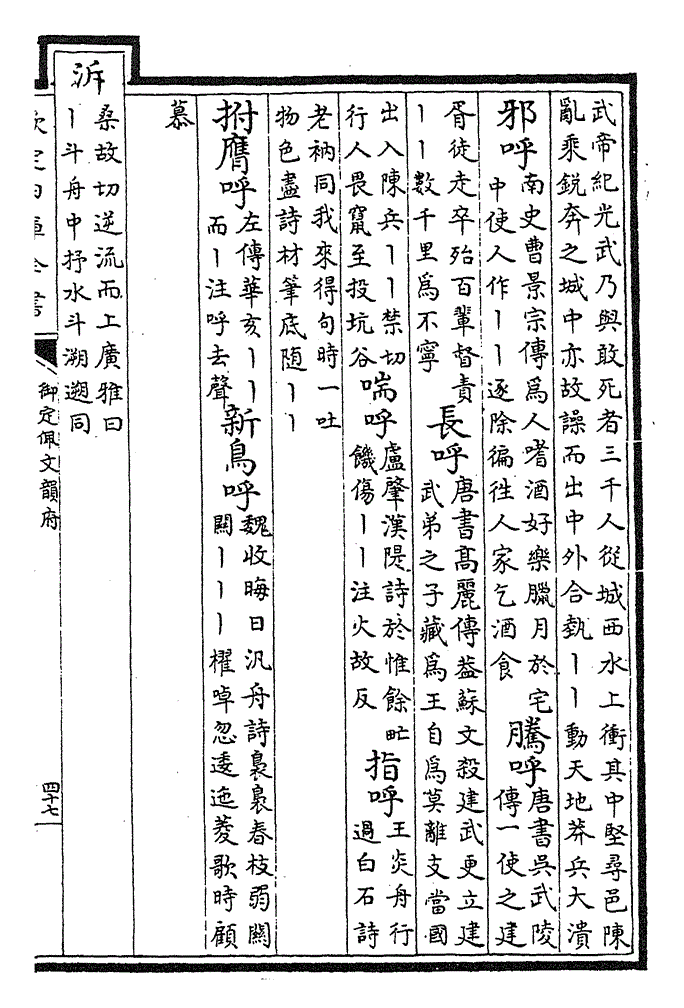 武帝紀光武乃與敢死者三千人從城西水上衝其中堅尋邑陳
亂乗鋭奔之城中亦故譟而出中外合埶丨丨動天地莽兵大潰
邪呼
南史曹景宗傳爲人嗜酒好樂臘月於宅
中使人作丨丨逐除徧徃人家乞酒食
騰呼
唐書吳武陵
傳一使之建
胥徒走卒殆百輩督責
丨丨數千里爲不寧
長呼
唐書髙麗傳葢蘇文殺建武更立建
武弟之子藏爲王自爲莫離支當國
出入陳兵丨丨禁切
行人畏竄至投坑谷
喘呼
盧肇漢隄詩於惟餘甿
饑傷丨丨注火故反
指呼
王炎舟行
過白石詩
老衲同我來得句時一吐
物色盡詩材筆底随丨丨
拊膺呼
左傳華亥丨丨
而丨注呼去聲
新鳥呼
魏收晦日汎舟詩裊裊春枝弱闗
闗丨丨丨櫂嘽忽逶迤菱歌時顧
慕
泝
桑故切逆流而上廣雅曰
丨斗舟中抒水斗溯遡同
欽定四庫全書
御定佩文韻府
四十七